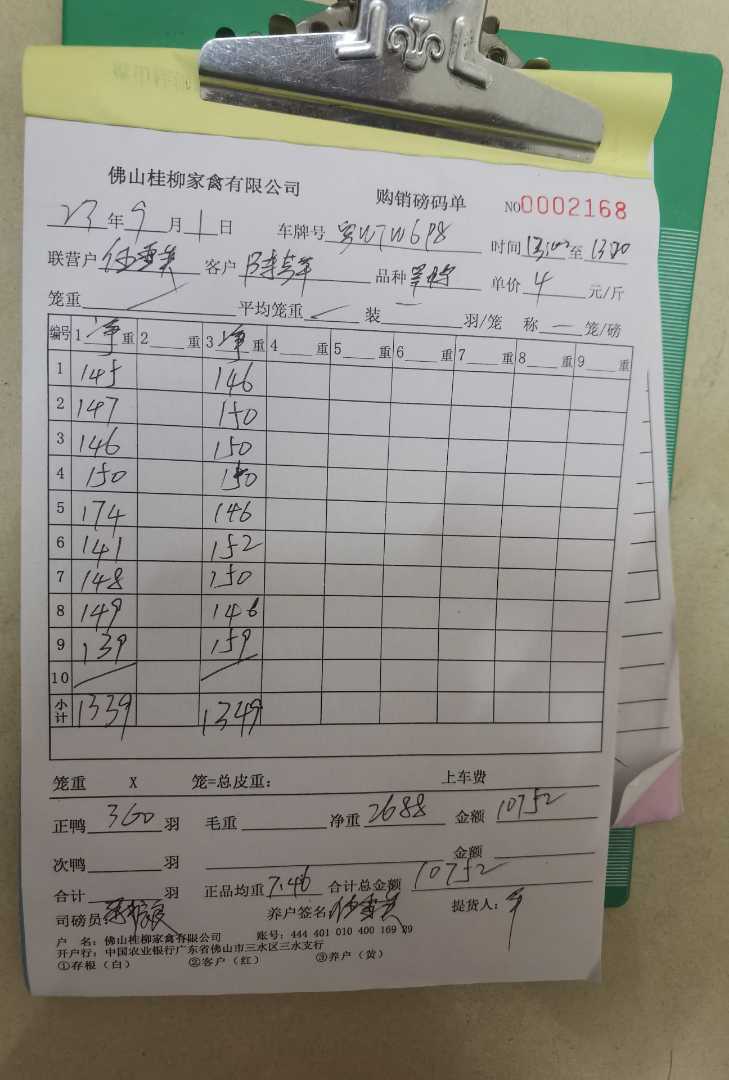 佛山桂柳家禽有限公司 购销磅码单 NO0002168
23年9月1日 车牌号 粤WTW6P8 时间 至
联营户 客户 品种 单价4元/斤
笼重 平均笼重 装 羽/笼 称 笼/磅
编号 1净重 2重 3净重 4重 5重 6重 7重 8重 9重
1 145 146
2 147 150
3 146 150
4 150 150
5 174 146
6 141 152
7 148 150
8 149 146
9 139 159
10
小计 1339 1349
笼重 X 笼=总皮重: 上车费
正鸭360羽 毛重 净重2688 金额10752
次鸭 羽 金额
合计 羽 正品均重7.46 合计总金额10752
司磅员 养户签名 提货人:
户 名: 佛山桂柳家禽有限公司 账号: 444 401 010 400 169 29
开户行: 中国农业银行广东省佛山市三水区三水支行
①存根(白) ②客户(红) ③养户(黄)